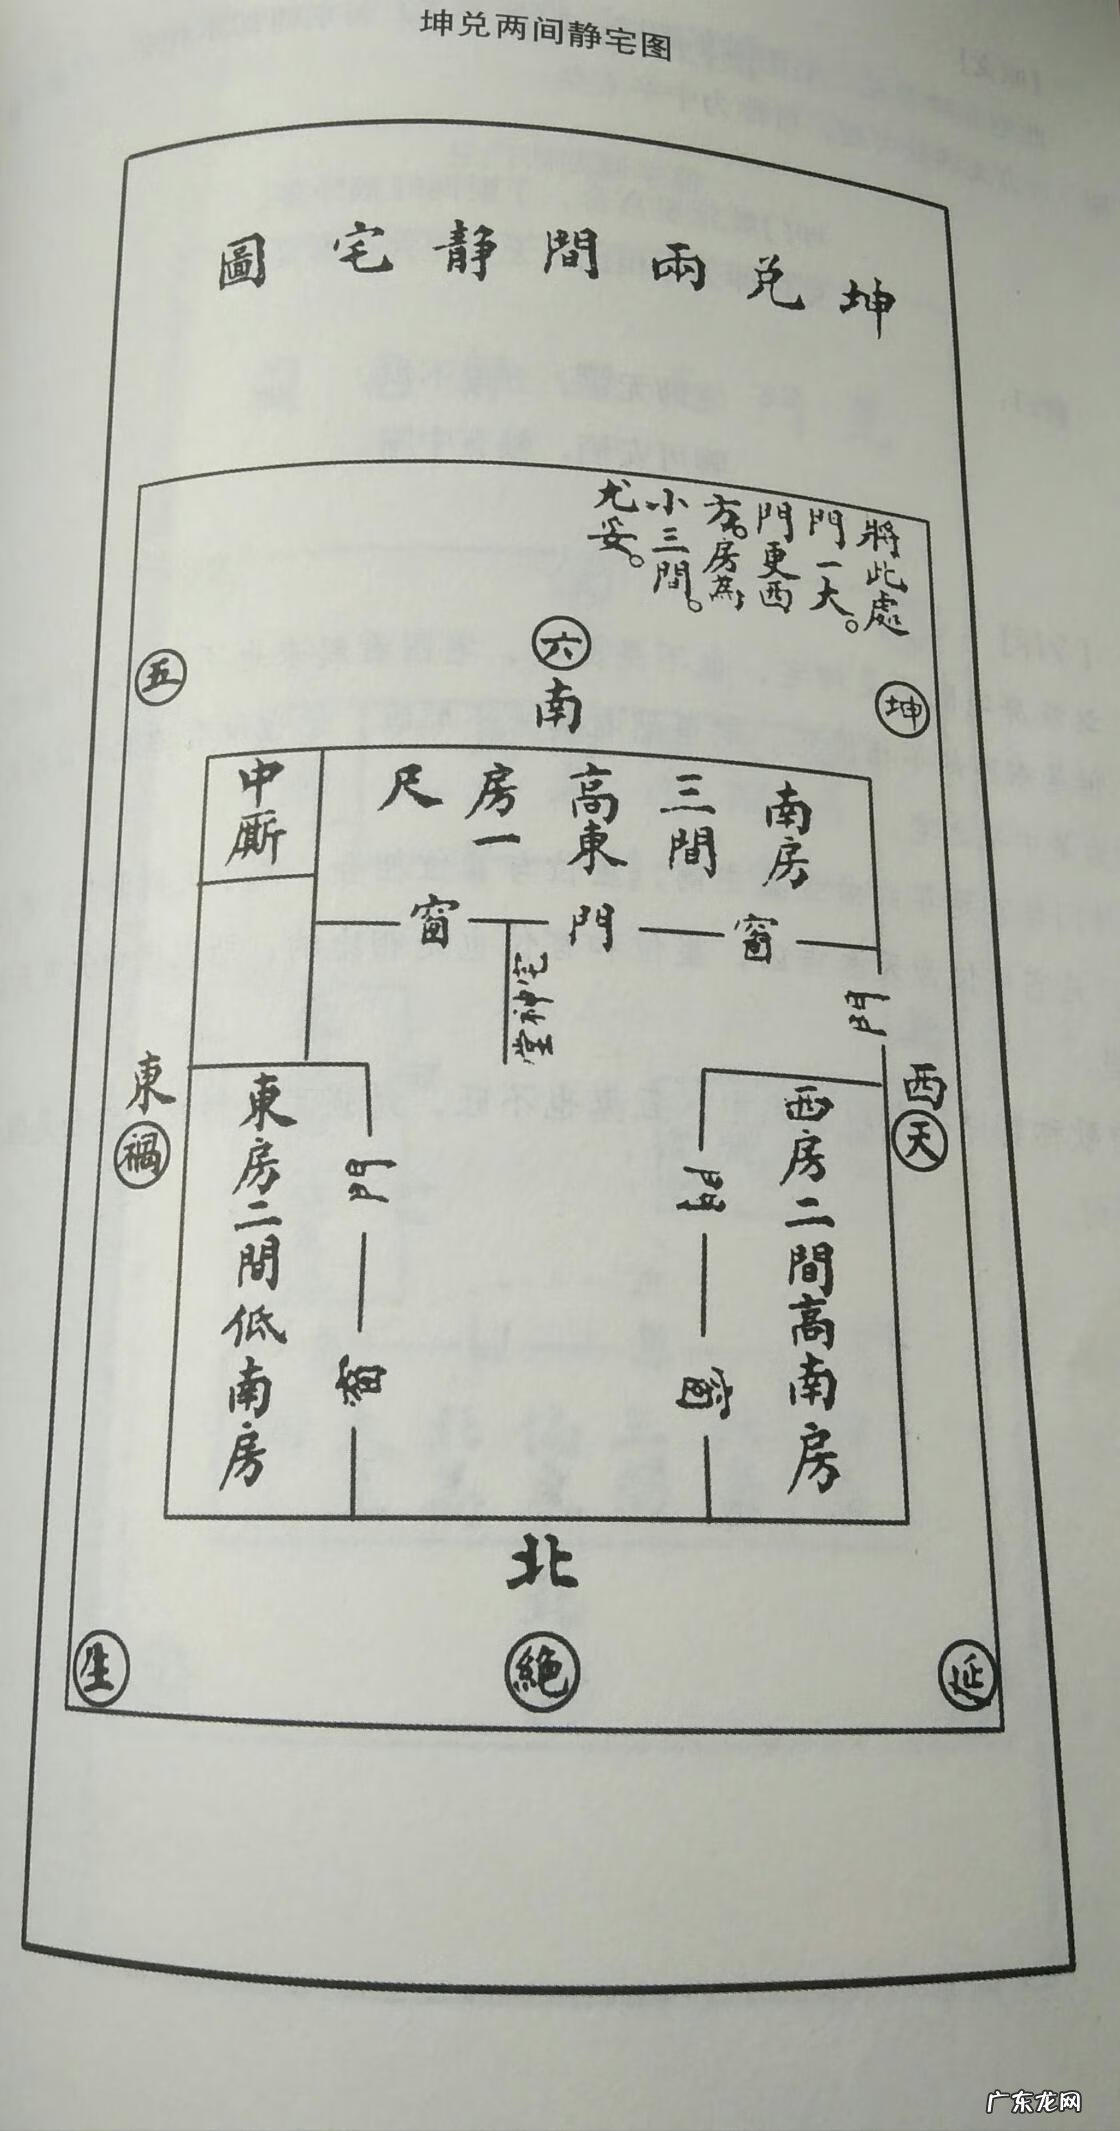 坤兑两间静宅图
坤兑兩間静宅圖
將此處
門一天。
門更西
方。房蓋
小三間。
尤妥。
五
六
南
坤
中厮
南房
三間
高東
房一
尺
窗
門
窗
宅神堂
門
東
禍
西
天
東房二間低南房
門
窗
西房二間高南房
門
窗
北
生
絶
延
广东龙网